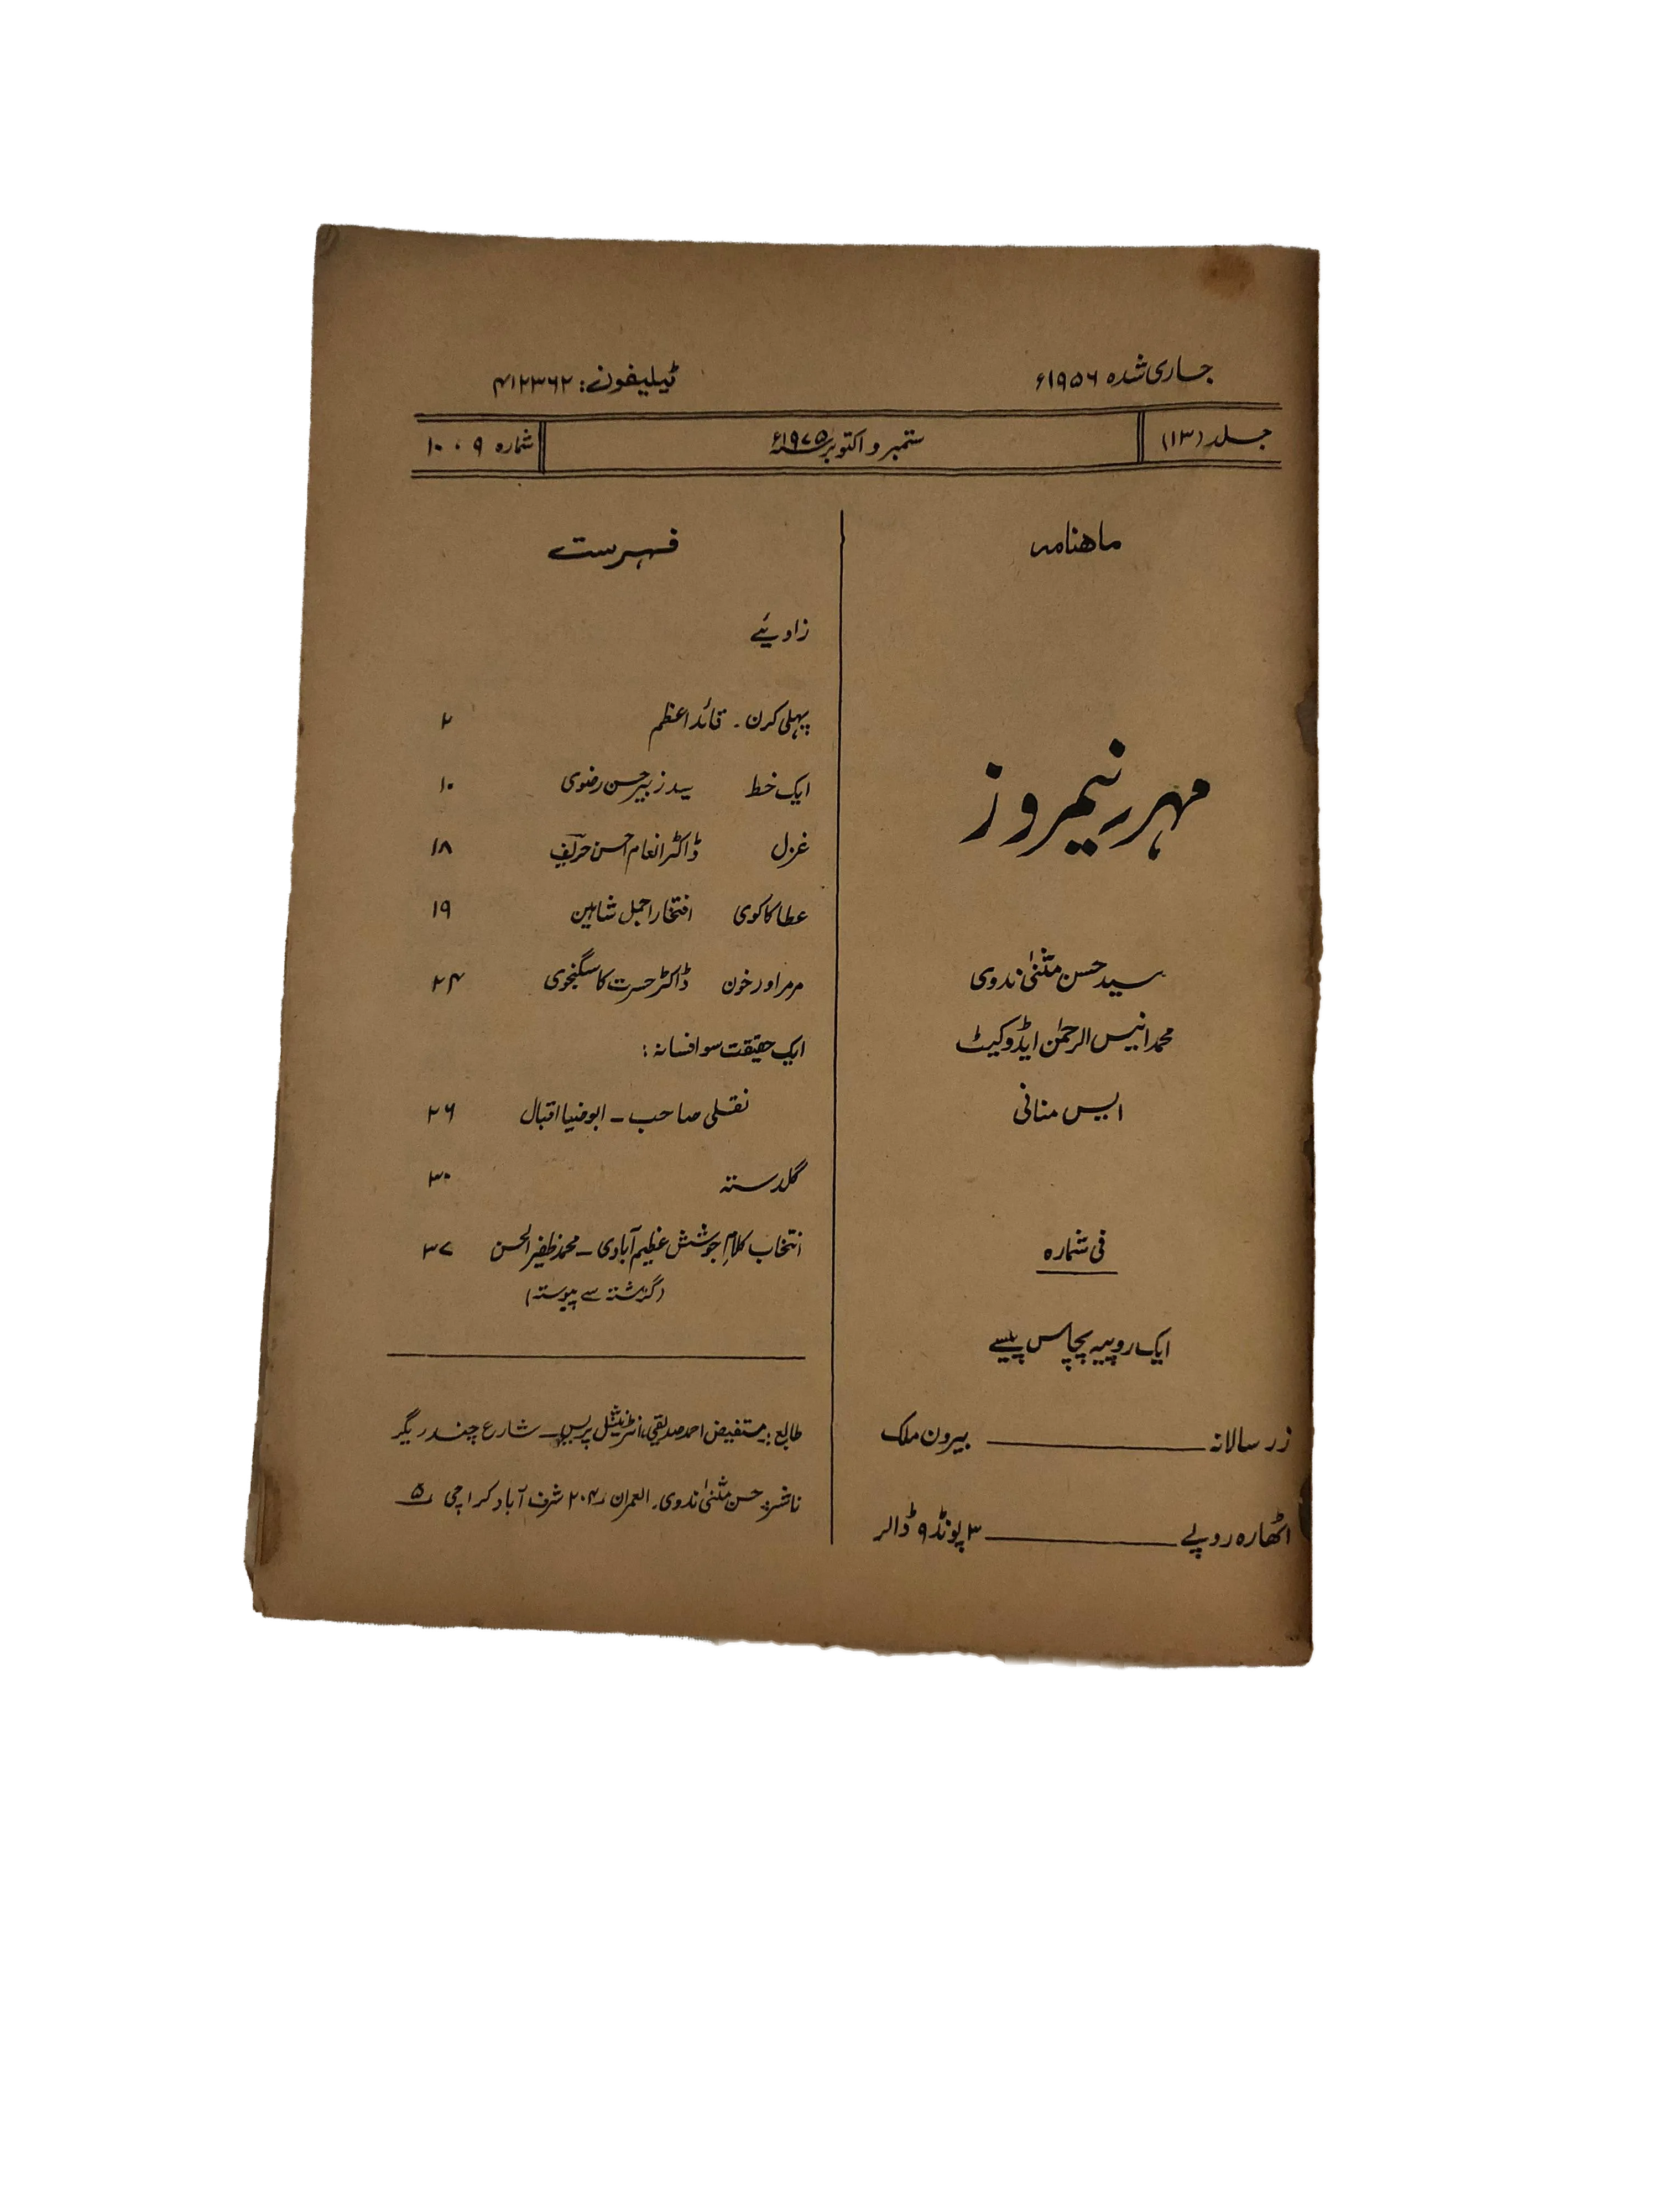 جاری شدہ ۱۹۵۶ء
ٹیلیفون: ۴۱۲۳۶۲
جلد (۱۳)
ستمبر و اکتوبر ۱۹۷۵ء
شمارہ ۹ ، ۱۰
ماھنامہ
مہر نیمروز
سید حسن مثنیٰ ندوی
محمد انیس الرحمٰن ایڈوکیٹ
ایس منانی
فی شمارہ
ایک روپیہ پچاس پیسے
زر سالانہ ــــــ بیرون ملک
اٹھارہ روپے ــــــ ۳ پونڈ ۹ ڈالر
فہرست
زاویئے
پہلی کرن - قائد اعظم ۲
ایک خط سید زبیر حسن رضوی ۱۰
غزل ڈاکٹر انعام احسن حریف ۱۸
عطا کاکوی افتخار اجمل شاہین ۱۹
مرمر اور خون ڈاکٹر حسرت کاسگنجوی ۲۴
ایک حقیقت سو افسانہ :
نقلی صاحب - ابو ضیا اقبال ۲۶
گلدستہ ۳۰
انتخاب کلامِ جوشش عظیم آبادی - محمد ظفیر الحسن ۳۷
(گزشتہ سے پیوستہ)
طابع: مستفیض احمد صدیقی، انٹرنیشنل پریس - شارع چندریگر
ناشر: حسن مثنیٰ ندوی، العمران ۲۰۴ شرف آباد کراچی ۵